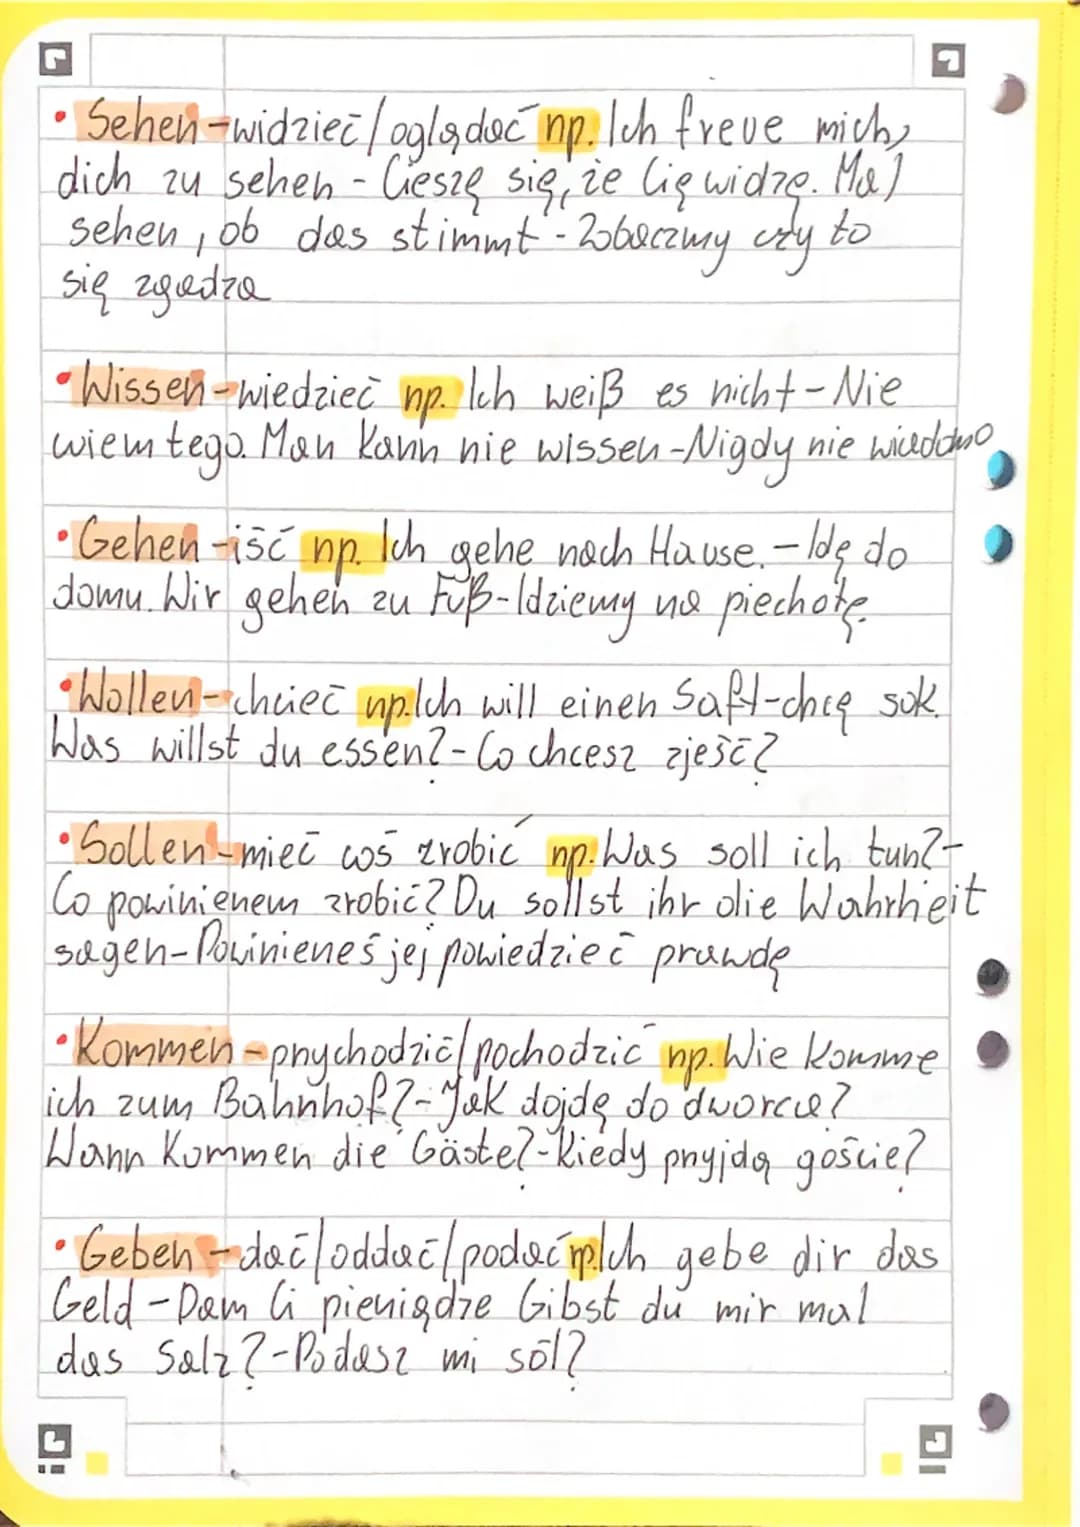 • Sehen - widzieć/oglądać np. Ich freue mich,
dich zu sehen - Cieszę się, że Cię widzę. Mal
sehen, ob das stimmt - Zobaczmy czy to
się zgadza
• Wissen - wiedzieć np. Ich weiß es nicht - Nie
wiem tego. Man kann nie wissen - Nigdy nie wiadomo
• Gehen - iść np. Ich gehe nach Hause. - Idę do
domu. Wir gehen zu Fuß - Idziemy na piechotę.
• Wollen - chcieć np. Ich will einen Saft - chcę sok.
Was willst du essen? - Co chcesz zjeść?
• Sollen - mieć coś zrobić np. Was soll ich tun? -
Co powinienem zrobić? Du sollst ihr die Wahrheit
sagen - Powinieneś jej powiedzieć prawdę
• Kommen - przychodzić/pochodzić np. Wie komme
ich zum Bahnhof? - Jak dojdę do dworca?
Wann kommen die Gäste? - Kiedy przyjdą goście?
• Geben - dać/oddać/podać np. Ich gebe dir das
Geld - Dam Ci pieniądze Gibst du mir mal
das Salz? - Podasz mi sól?